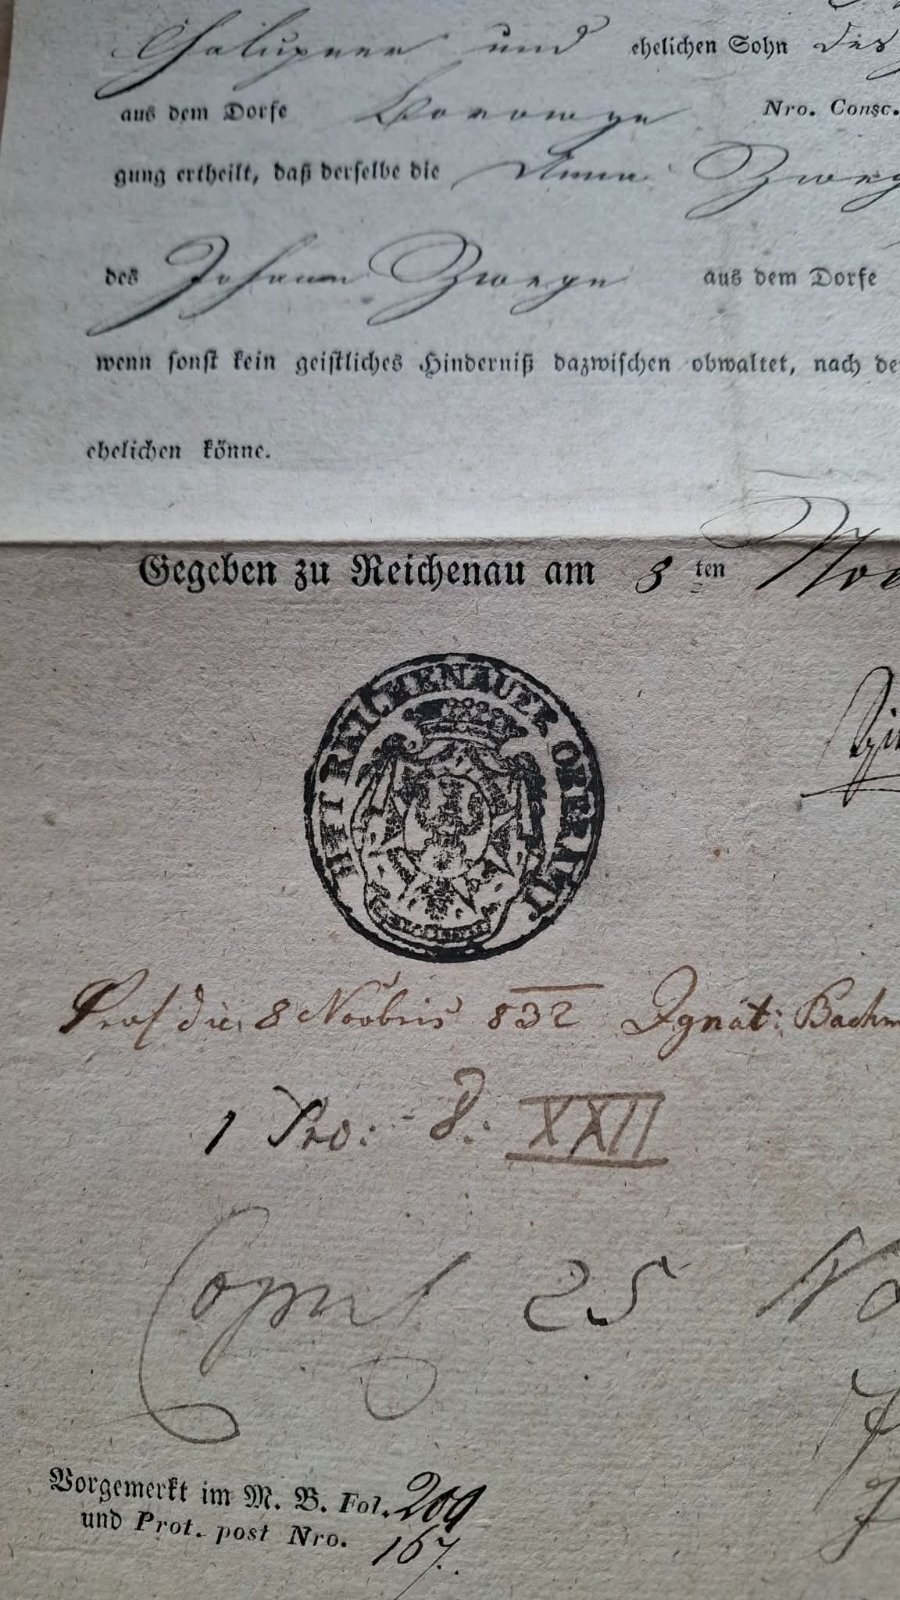 Chalupner und ehelichen Sohn des
aus dem Dorfe Nro. Consc.
gung ertheilt, daß derselbe die Anna
des Johann aus dem Dorfe
wenn sonst kein geistliches Hinderniß dazwischen obwaltet, nach de
ehelichen könne.
Gegeben zu Reichenau am 8 ten Nov
REICHENAUER OBERAMT
8 Novbris 832 Ignat: Bachm
1 Pro: 8: XXII
Copul 25 No
Vorgemerkt im M. B. Fol. 209
und Prot. post Nro. 167.